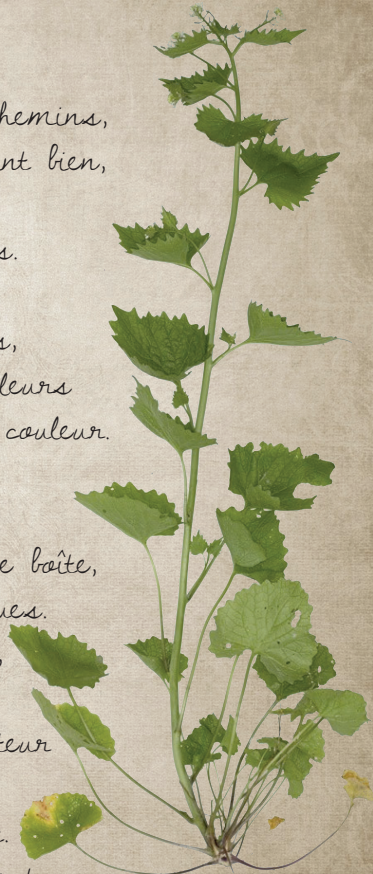 hemins,
nt bien,
s.
s,
leurs
couleur.
e boîte,
ues.
teur